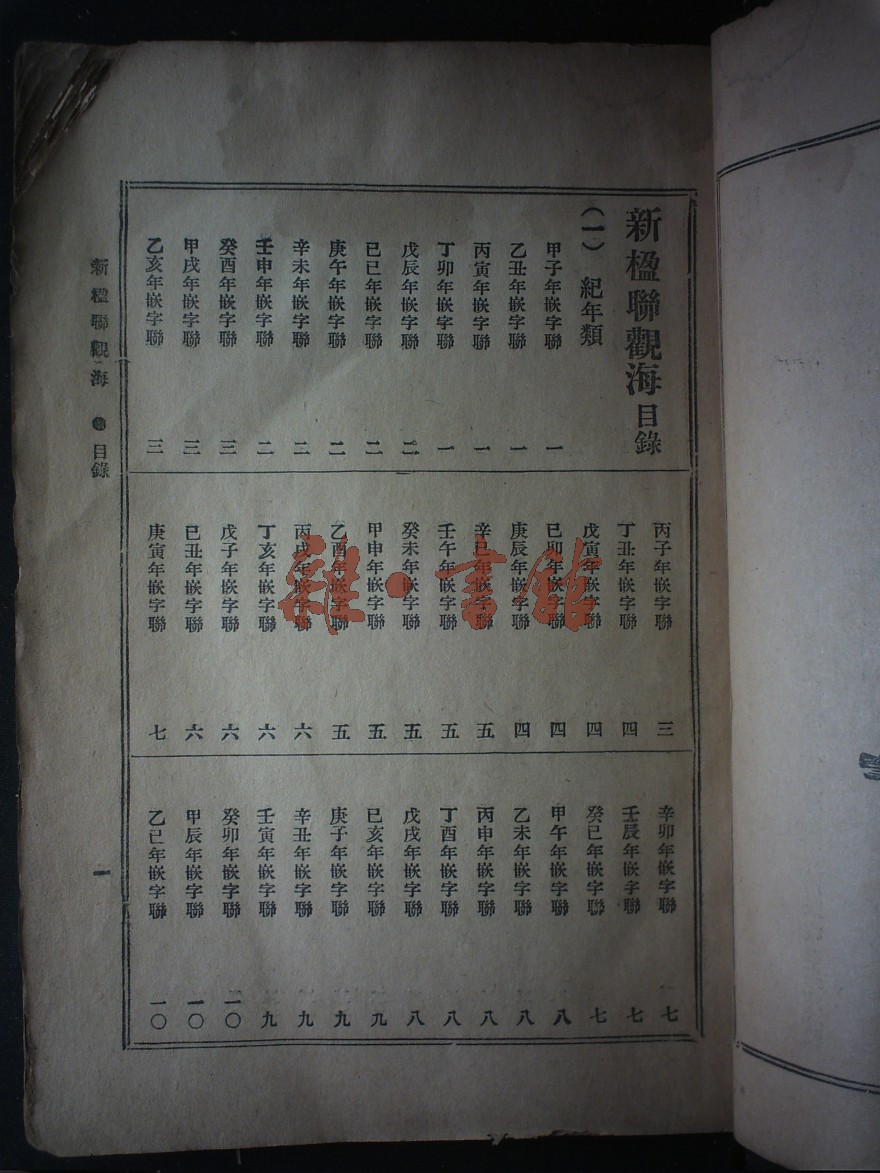 新楹聯觀海目錄
（一）　紀年類
甲子年嵌字聯　一
乙丑年嵌字聯　一
丙寅年嵌字聯　一
丁卯年嵌字聯　一
戊辰年嵌字聯　二
已巳年嵌字聯　二
庚午年嵌字聯　二
辛未年嵌字聯　二
壬申年嵌字聯　二
癸酉年嵌字聯　三
甲戌年嵌字聯　三
乙亥年嵌字聯　三
丙子年嵌字聯　三
丁丑年嵌字聯　四
戊寅年嵌字聯　四
已卯年嵌字聯　四
庚辰年嵌字聯　四
辛巳年嵌字聯　五
壬午年嵌字聯　五
癸未年嵌字聯　五
甲申年嵌字聯　五
乙酉年嵌字聯　五
丙戌年嵌字聯　六
丁亥年嵌字聯　六
戊子年嵌字聯　六
已丑年嵌字聯　六
庚寅年嵌字聯　七
辛卯年嵌字聯　七
壬辰年嵌字聯　七
癸巳年嵌字聯　七
甲午年嵌字聯　八
乙未年嵌字聯　八
丙申年嵌字聯　八
丁酉年嵌字聯　八
戊戌年嵌字聯　八
已亥年嵌字聯　九
庚子年嵌字聯　九
辛丑年嵌字聯　九
壬寅年嵌字聯　九
癸卯年嵌字聯　一〇
甲辰年嵌字聯　一〇
乙巳年嵌字聯　一〇
新楹聯觀海　目錄
一
雜·書館